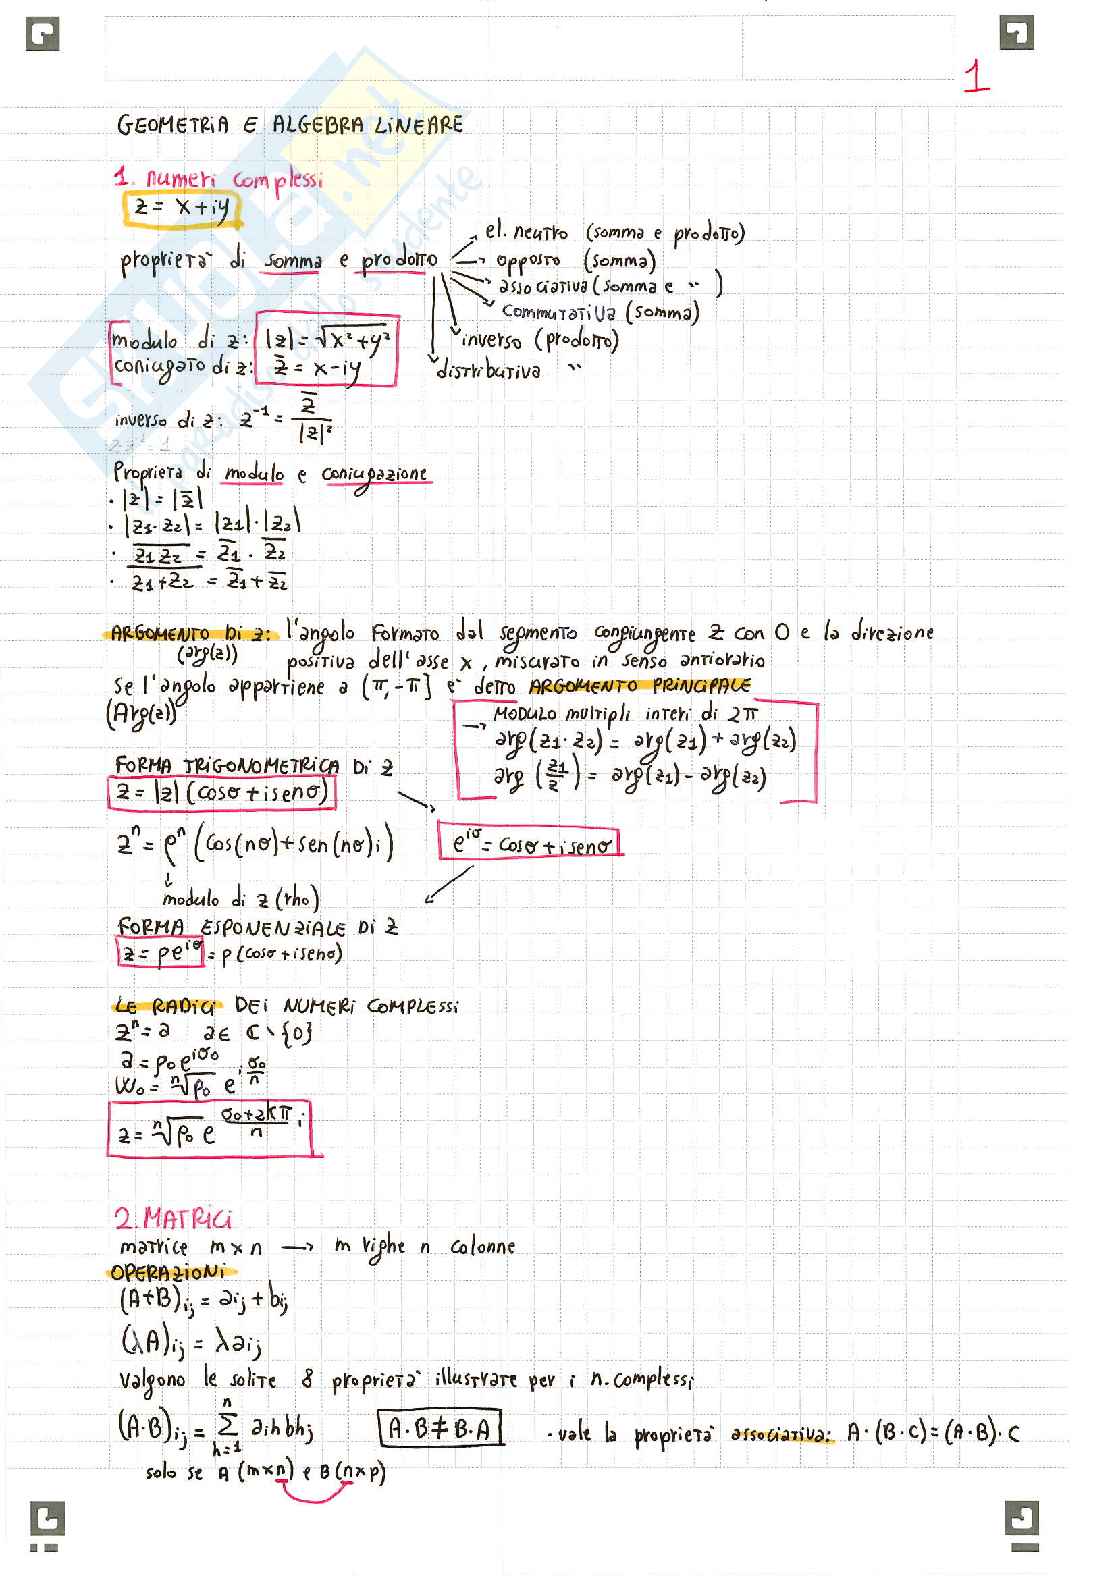 1
GEOMETRIA E ALGEBRA LINEARE
1. numeri complessi
z = x+iy
proprietà di somma e prodotto
→ el. neutro (somma e prodotto)
→ opposto (somma)
→ associativa (somma e " )
→ commutativa (somma)
→ inverso (prodotto)
→ distributiva "
modulo di z: |z| = √x²+y²
coniugato di z: z̅ = x-iy
inverso di z: z⁻¹ = z̅/|z|²
Proprietà di modulo e coniugazione
· |z| = |z̅|
· |z₁·z₂| = |z₁|·|z₂|
· \overline{z₁z₂} = z̅₁ · z̅₂
· \overline{z₁+z₂} = z̅₁ + z̅₂
ARGOMENTO DI z: l'angolo formato dal segmento congiungente z con 0 e la direzione
(arg(z)) positiva dell'asse x, misurato in senso antiorario
Se l'angolo appartiene a (π,-π] è detto ARGOMENTO PRINCIPALE
(Arg(z))
→ MODULO multipli interi di 2π
arg(z₁·z₂) = arg(z₁) + arg(z₂)
arg(z₁/z) = arg(z₁) - arg(z₂)
FORMA TRIGONOMETRICA DI z
z = |z| (cosσ + i senσ)
zⁿ = ρⁿ (cos(nσ) + sen(nσ)i)
e^{iσ} = cosσ + i senσ
↓
modulo di z (rho)
FORMA ESPONENZIALE DI z
z = ρe^{iσ} = ρ(cosσ + i senσ)
LE RADICI DEI NUMERI COMPLESSI
zⁿ = a a∈ ℂ∖{0}
a = ρ₀e^{iσ₀}
W₀ = ⁿ√ρ₀ e^{i σ₀/n}
z = ⁿ√ρ₀ e^{(σ₀+2kπ)/n i}
2. MATRICI
matrice m×n → m righe n colonne
OPERAZIONI
(A+B)ᵢⱼ = aᵢⱼ + bᵢⱼ
(λA)ᵢⱼ = λaᵢⱼ
Valgono le solite 8 proprietà illustrate per i n. complessi
(A·B)ᵢⱼ = Σ_{h=1}^{n} aᵢₕ bₕⱼ A·B ≠ B·A · vale la proprietà associativa: A·(B·C) = (A·B)·C
solo se A (m×n) e B (n×p)